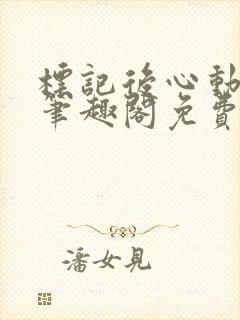 標記後心動
筆趣閣免費
潘女見